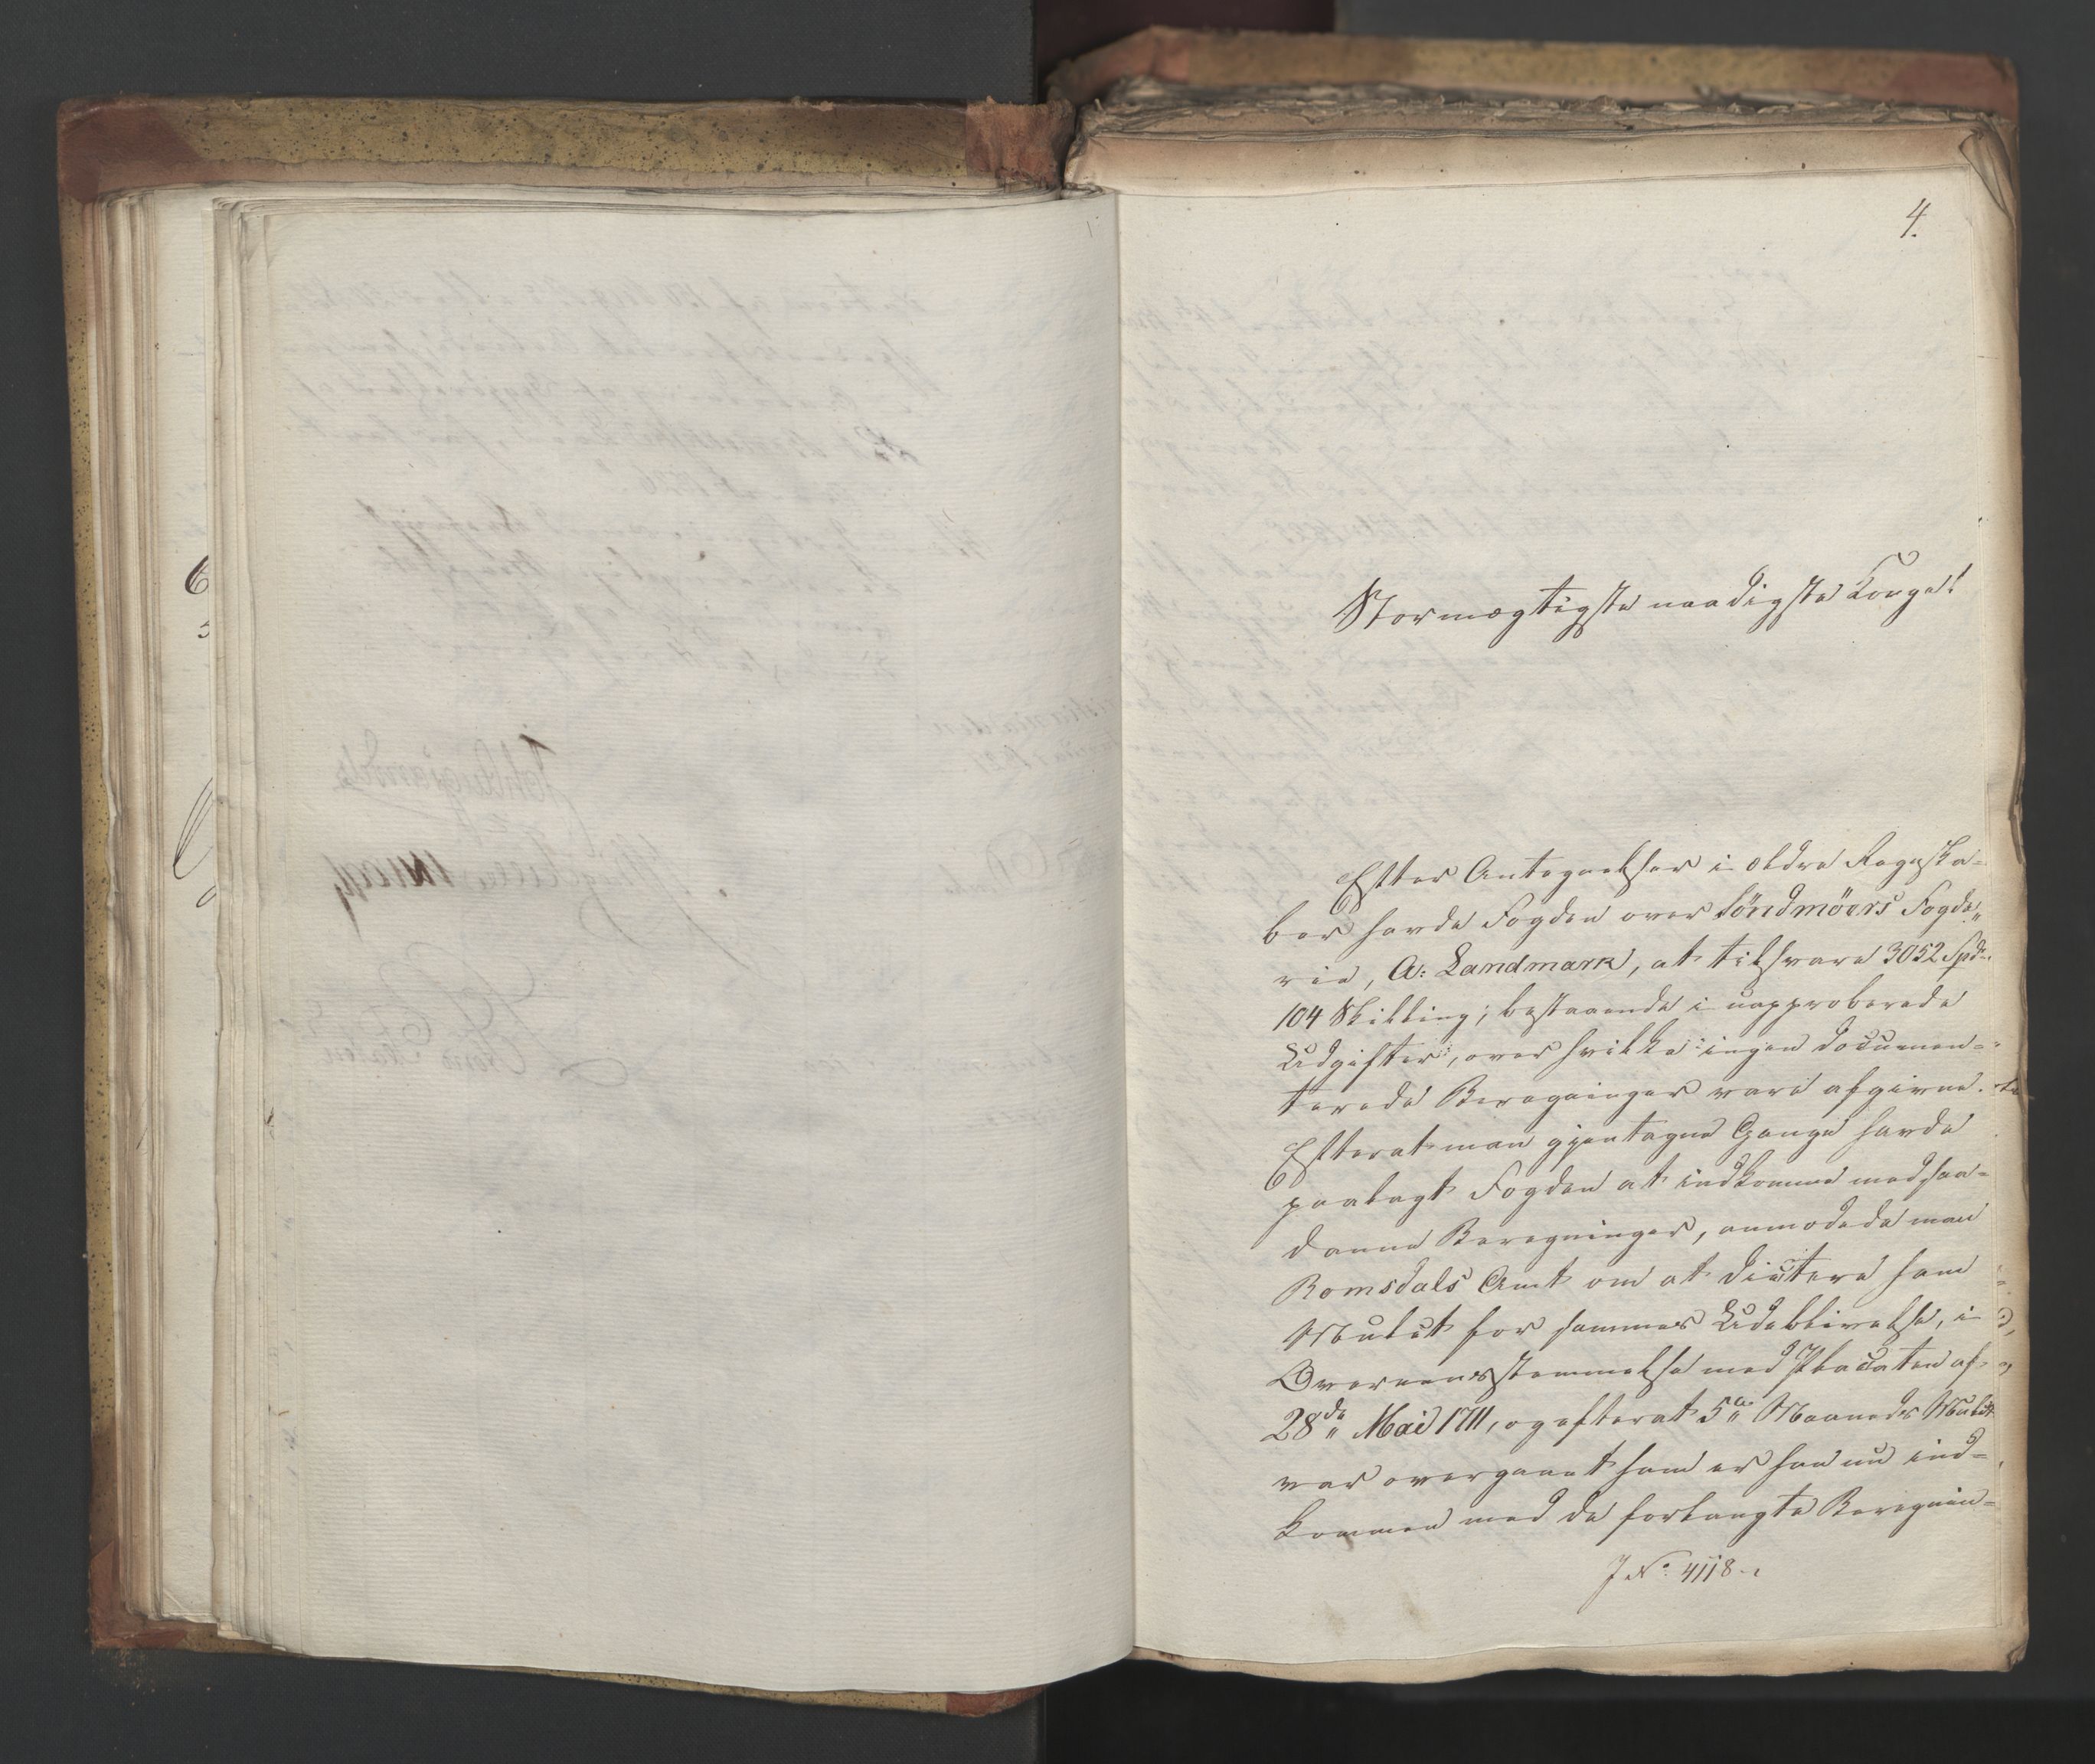 4.
Stormægtigste naadigste Konge!
Efter Antegnelser i ældre Regnska-
ber havde Fogden over Söndmöers Fogde„
rie, A: Landmark, at tilsvare 3052 Spd.
104 Skilling; bestaaende i uapproberede
Udgifter, over hvilke ingen documen-
terede Beregninger vare afgivne.
Efterat man gjentagne Gange havde
paalagt Fogden at indkomme med saa-
danne Beregninger, anmodede man
Romsdals Amt om at dictere ham
Mulct for sammes Udeblivelse, i
Overeensstemmelse med Placaten af
28de Mai 1711, og efterat 5 Maaneds Mulct
var overgaaet ham er han nu ind-
kommen med de forlangte Beregnin-
J No. 4118.